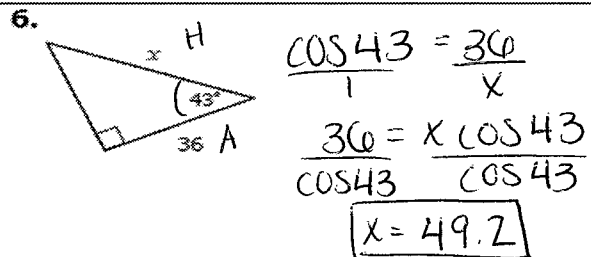 6.
x H
43°
36 A
cos 43 / 1 = 36 / x
36 / cos 43 = x cos 43 / cos 43
x = 49.2